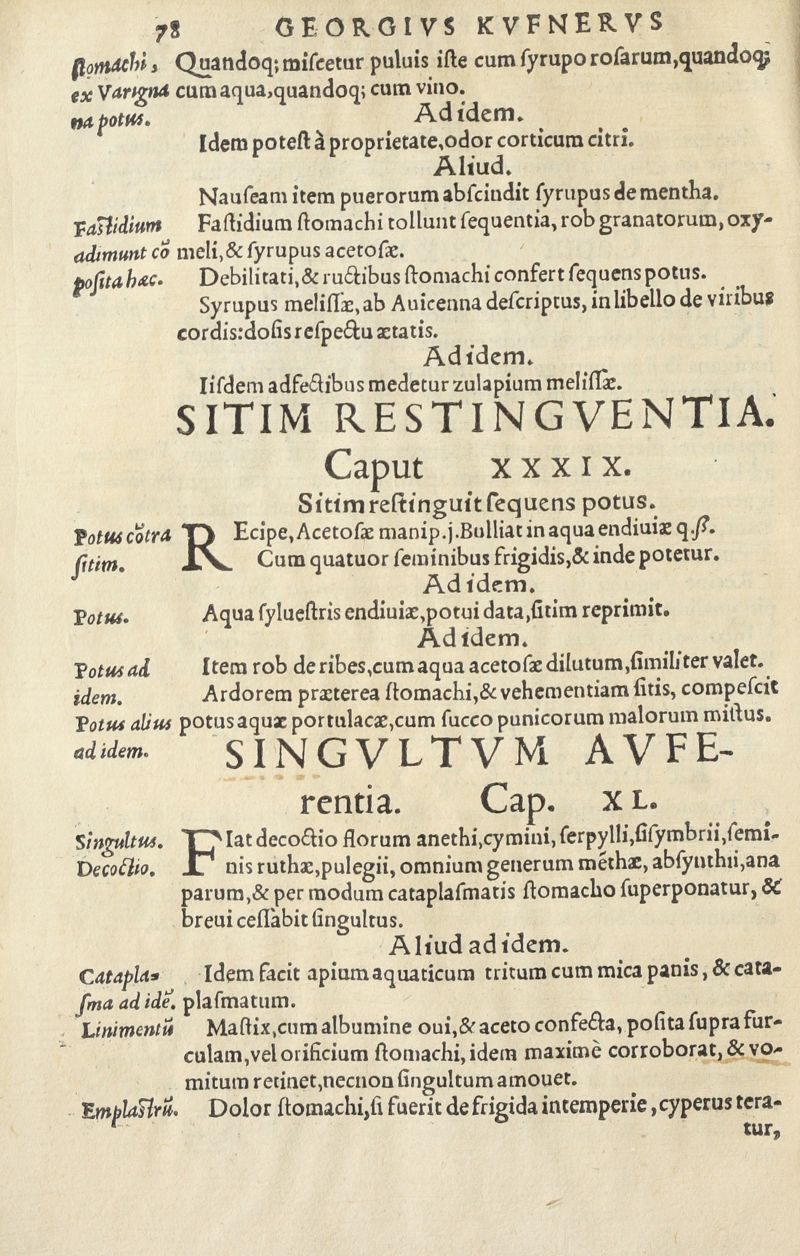 78 GEORGIVS KVFNERVS
ſtomachi, Quandoq; miſcetur puluis iſte cum ſyrupo roſarum,quandoq;
ex Varigna cum aqua,quandoq; cum vino.
na potus. Ad idem.
Idem poteſt à proprietate,odor corticum citri.
Aliud.
Nauſeam item puerorum abſcindit ſyrupus de mentha.
Faſtidium Faſtidium ſtomachi tollunt ſequentia, rob granatorum, oxy-
adimunt cõ meli,& ſyrupus acetoſæ.
poſita hæc. Debilitati,& ructibus ſtomachi confert ſequens potus.
Syrupus meliſſæ,ab Auicenna deſcriptus, in libello de viribus
cordis:doſis reſpectu ætatis.
Ad idem.
Iiſdem adfectibus medetur zulapium meliſſæ.
SITIM RESTINGVENTIA.
Caput XXXIX.
Sitim reſtinguit ſequens potus.
Potus cõtra REcipe, Acetoſæ manip.j.Bulliat in aqua endiuiæ q.ſ.
ſitim. Cum quatuor ſeminibus frigidis,& inde potetur.
Ad idem.
Potus. Aqua ſylueſtris endiuiæ,potui data,ſitim reprimit.
Ad idem.
Potus ad Item rob de ribes,cum aqua acetoſæ dilutum,ſimiliter valet.
idem. Ardorem præterea ſtomachi,& vehementiam ſitis, compeſcit
Potus alius potus aquæ portulacæ,cum ſucco punicorum malorum miſtus.
ad idem. SINGVLTVM AVFE-
rentia. Cap. XL.
Singultus. FIat decoctio florum anethi,cymini, ſerpylli,ſiſymbrii,ſemi-
Decoctio. nis ruthæ,pulegii, omnium generum mẽthæ, abſynthii,ana
parum,& per modum cataplaſmatis ſtomacho ſuperponatur, &
breui ceſſabit ſingultus.
Aliud ad idem.
Catapla- Idem facit apium aquaticum tritum cum mica panis, & cata-
ſma ad idẽ. plaſmatum.
Linimentũ Maſtix,cum albumine oui,& aceto confecta, poſita ſupra fur-
culam,vel orificium ſtomachi, idem maximè corroborat, & vo-
mitum retinet,necnon ſingultum amouet.
Emplaſtrũ. Dolor ſtomachi,ſi fuerit de frigida intemperie, cyperus tera-
tur,